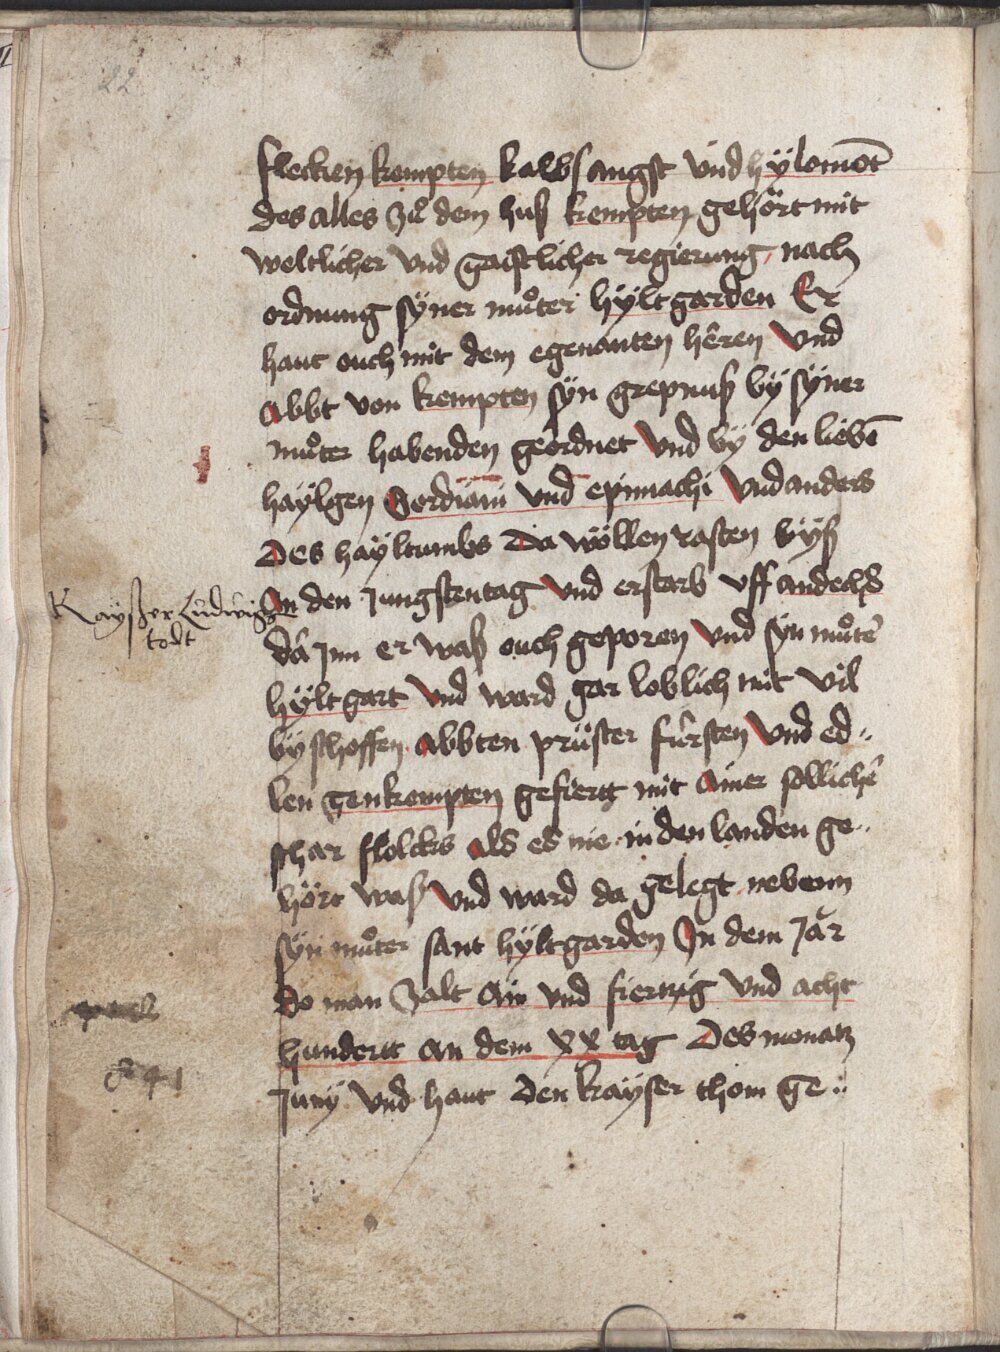 22
flecken kempten kalbsangst vnd hÿlomōt
des alles zů dem huß kempten gehört mit
weltlicher vnd gaistlicher regierung nach
ordnung sÿner můter hÿltgarden Er
haut ouch mit dem egenanten hêren Vnd
abbt von kempten sÿn grepnuß bÿ sÿner
můter habenden geordnet Vnd bÿ den liebē
haÿlgen Gordiani vnd epimachi Vnd anders
Des haÿltumbs Da wöllen rasten byß
An den Jungstentag Vnd erstarb vff andechs
Kayßer Ludwigs
todt
da Jnn er waß ouch geporen Vnd sÿn můter
hÿltgart Vnd ward gar loblich mit vil
bÿschoffen abbten prüster fürsten Vnd ed..
len gen kempten gefiertt mit ainer sollichē
schar folcks als es nie in den landen ge..
hört waß Vnd ward da gelegt nebenn
sÿn můter sant hÿltgarden Jn dem Jar
do man zalt ain vnd fiertzig vnd acht
hundertt an dem xx tag Des monatz
841
Junÿ vnd haut den kaÿser thom ge..